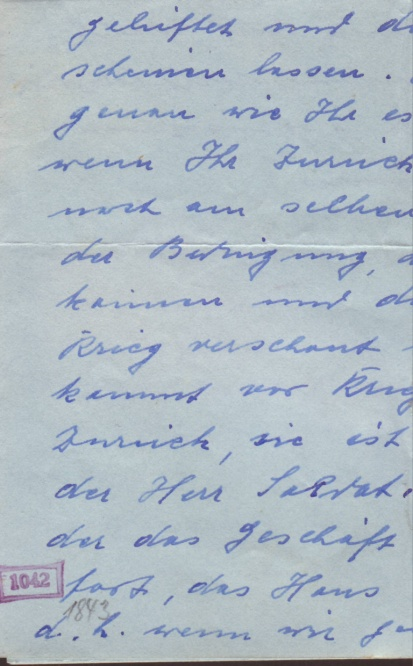 geliftet und d
scheinen lassen.
genau wie Ihr es
wenn Ihr Zurück
noch am selben
der Bedingung, d
kommen und d
Krieg verschont
kommt vor Krieg
Zurück, sie ist
der Herr Soldat
der das Geschäft
fort, das Haus
1042
1843
d.h. wenn wir ge